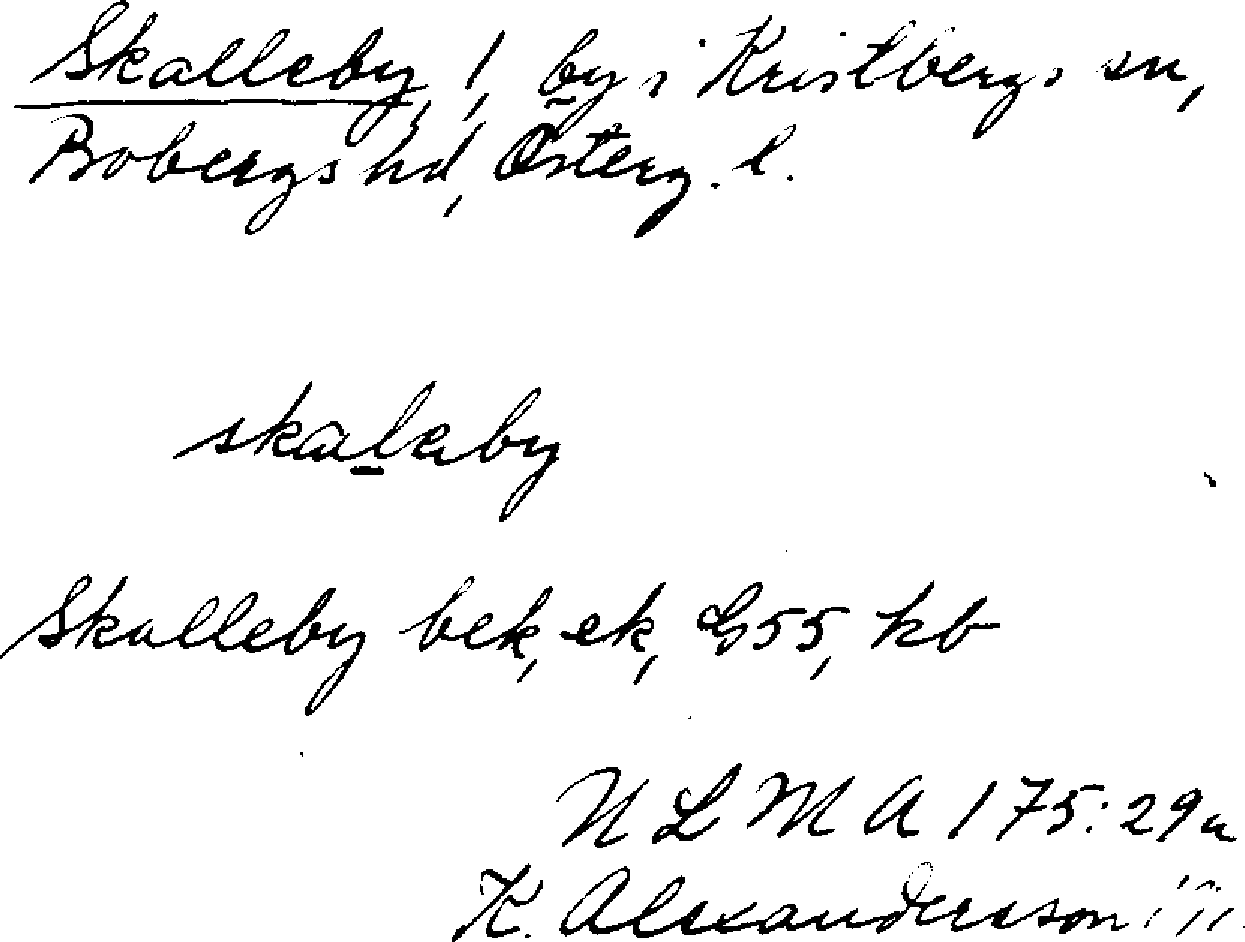 Skalleby, 1, by i Kristbergs sn,
Bobergs hd, Österg. l.
skaleby
Skalleby bek, ek, G55, kb
N L M A 175:29a
K. Alexandersson